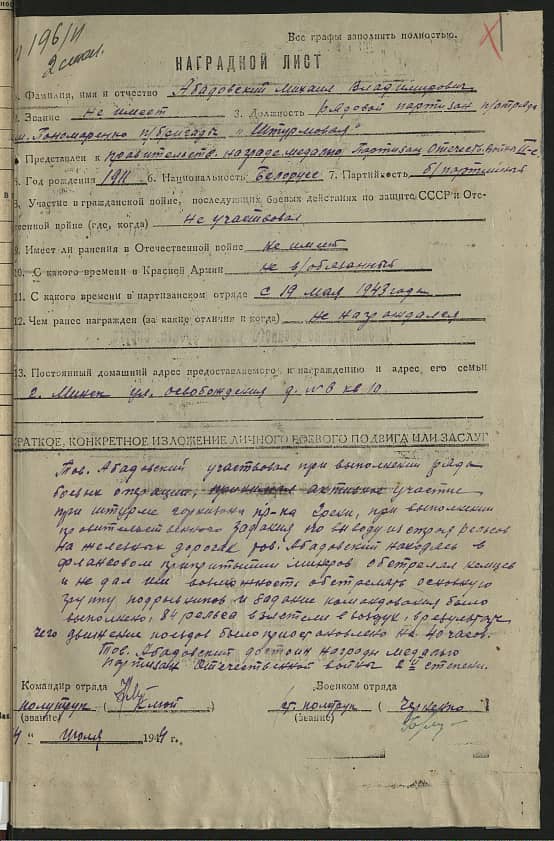 196/П
Все графы заполнить полностью.
НАГРАДНОЙ ЛИСТ
1. Фамилия, имя и отчество Абадовский Михаил Владимирович
2. Звание не имеет 3. Должность рядовой партизан п/отряда
им. Пономаренко п/бригады "Штурмовая"
Представлен к правительств. награде медалью Партизан Отечеств. войны II-с
5. Год рождения 1911 6. Национальность Белорусс 7. Партийность б/партийный
8. Участие в гражданской войне, последующих боевых действиях по защите СССР и Оте-
чественной войне (где, когда) не участвовал
9. Имеет ли ранения в Отечественной войне не имеет
10. С какого времени в Красной Армии не в/обязанный
11. С какого времени в партизанском отряде с 19 мая 1943 года
12. Чем ранее награжден (за какие отличия и когда) не награждался
13. Постоянный домашний адрес предоставляемого к награждению и адрес его семьи
г. Минск ул. освобождения д. № 6 кв 10.
КРАТКОЕ, КОНКРЕТНОЕ ИЗЛОЖЕНИЕ ЛИЧНОГО БОЕВОГО ПОДВИГА ИЛИ ЗАСЛУГ
Тов. Абадовский участвовал при выполнении ряда
боевых операций, принимал активное участие
при штурме гарнизона пр-ка при выполнении
правительственного задания по выводу из строя рельсов
на железных дорогах тов. Абадовский находясь в
фланговом прикрытии минеров обстрелял немцев
и не дал им возможность обстрелять основную
группу подрывников и задание командования было
выполнено, 84 рельса взлетели в воздух, в результате
чего движение поездов было приостановлено на 40 часов.
Тов. Абадовский достоин награды медалью
Партизан Отечественной войны 2й степени.
Командир отряда Военком отряда
политрук ( Клюй ) ст. политрук ( )
(звание) (звание)
4 " Июля 1944 г.